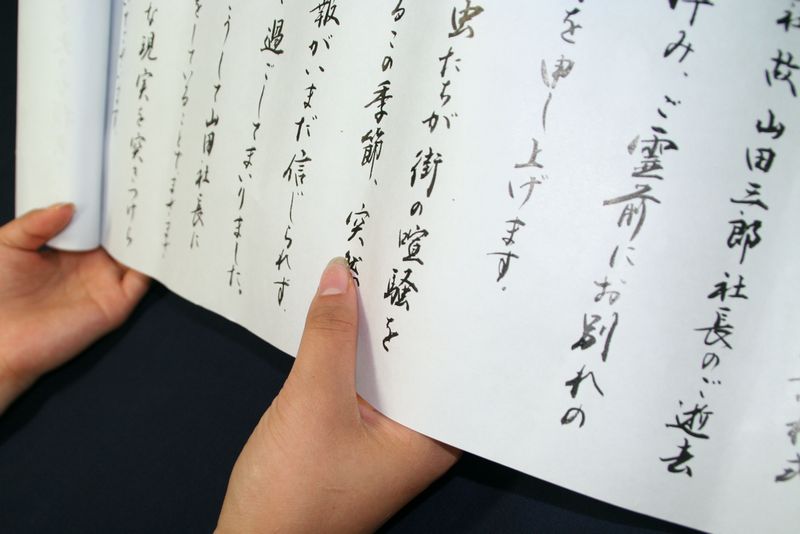 社 故 山田三郎 社長のご逝去
み、ご霊前にお別れの
を申し上げます。
虫たちが街の喧騒を
るこの季節、突然
報がいまだ信じられず、
、過ごしてまいりました。
うして山田社長に
をしていること
な現実を突きつけら